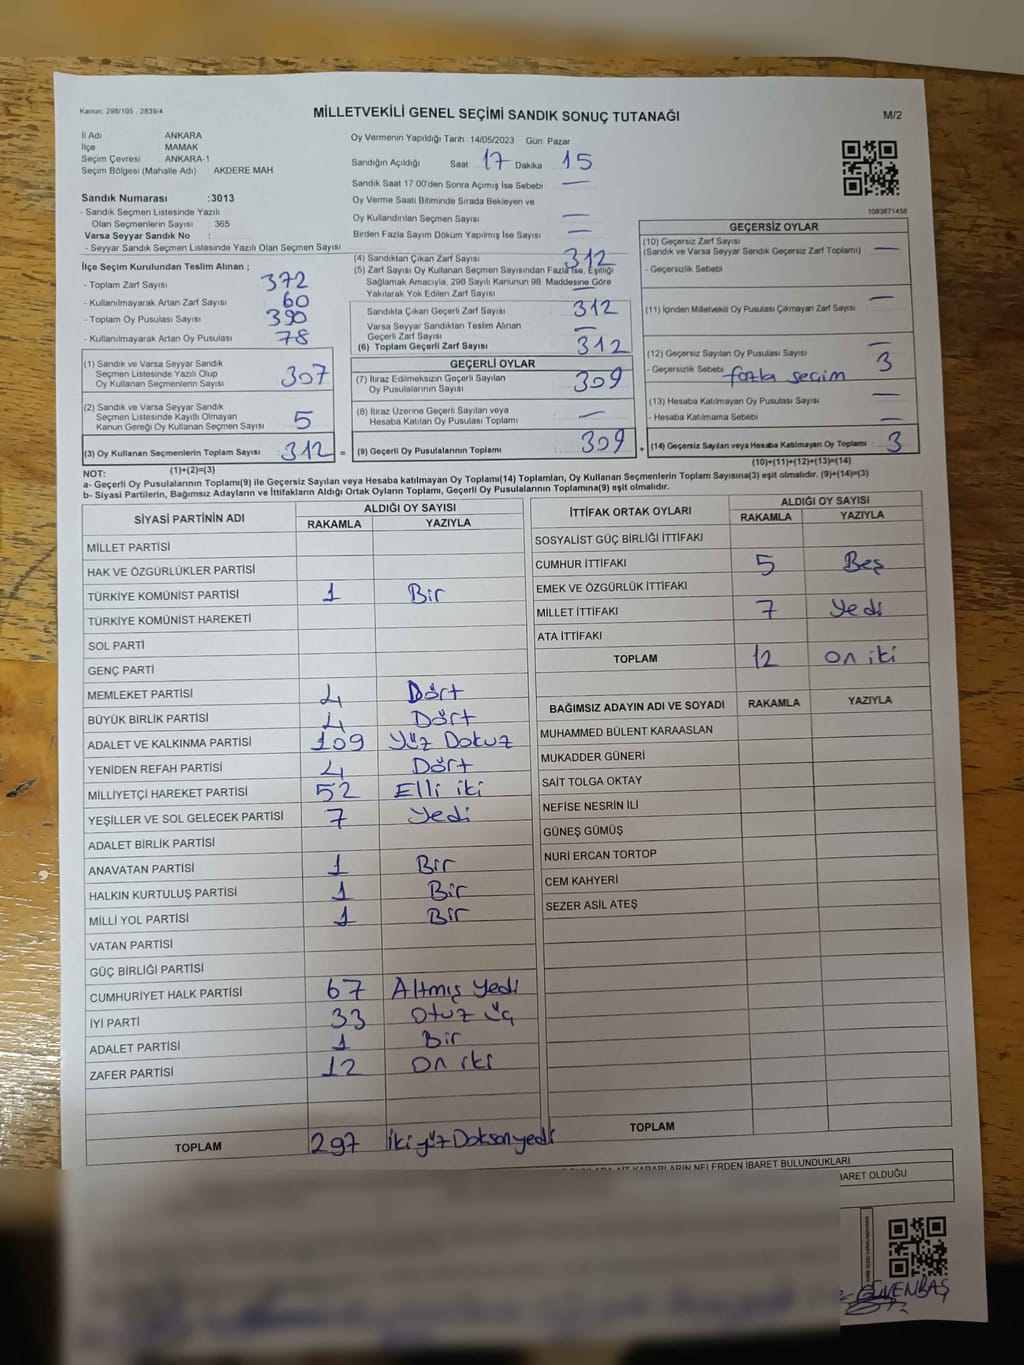 Kanun: 298/105 , 2839/4
MİLLETVEKİLİ GENEL SEÇİMİ SANDIK SONUÇ TUTANAĞI
M/2
İl Adı ANKARA
İlçe MAMAK
Seçim Çevresi ANKARA-1
Seçim Bölgesi (Mahalle Adı) AKDERE MAH
Sandık Numarası :3013
- Sandık Seçmen Listesinde Yazılı
Olan Seçmenlerin Sayısı : 365
Varsa Seyyar Sandık No :
- Seyyar Sandık Seçmen Listesinde Yazılı Olan Seçmen Sayısı
Oy Vermenin Yapıldığı Tarih :14/05/2023 Gün: Pazar
Sandığın Açıldığı Saat: 17 Dakika 15
Sandık Saat 17:00'den Sonra Açımış İse Sebebi : —
Oy Verme Saati Bitiminde Sırada Bekleyen ve
Oy Kullandırılan Seçmen Sayısı : —
Birden Fazla Sayım Döküm Yapılmış İse Sayısı : —
1083871458
İlçe Seçim Kurulundan Teslim Alınan ;
- Toplam Zarf Sayısı : 372
- Kullanılmayarak Artan Zarf Sayısı : 60
- Toplam Oy Pusulası Sayısı : 390
- Kullanılmayarak Artan Oy Pusulası : 78
(1) Sandık ve Varsa Seyyar Sandık
Seçmen Listesinde Yazılı Olup
Oy Kullanan Seçmenlerin Sayısı : 307
(2) Sandık ve Varsa Seyyar Sandık
Seçmen Listesinde Kayıtlı Olmayan
Kanun Gereği Oy Kullanan Seçmen Sayısı : 5
(3) Oy Kullanan Seçmenlerin Toplam Sayısı : 312 =
(1)+(2)=(3)
(4) Sandıktan Çıkan Zarf Sayısı : 312
(5) Zarf Sayısı Oy Kullanan Seçmen Sayısından Fazla İse, Eşitliği
Sağlamak Amacıyla, 298 Sayılı Kanunun 98. Maddesine Göre
Yakılarak Yok Edilen Zarf Sayısı : —
Sandıkta Çıkan Geçerli Zarf Sayısı : 312
Varsa Seyyar Sandıktan Teslim Alınan
Geçerli Zarf Sayısı : —
(6) Toplam Geçerli Zarf Sayısı : 312
GEÇERLİ OYLAR
(7) İtiraz Edilmeksizin Geçerli Sayılan
Oy Pusulalarının Sayısı : 309
(8) İtiraz Üzerine Geçerli Sayılan veya
Hesaba Katılan Oy Pusulası Toplamı : —
(9) Geçerli Oy Pusulalarının Toplamı : 309 +
GEÇERSİZ OYLAR
(10) Geçersiz Zarf Sayısı
(Sandık ve Varsa Seyyar Sandık Geçersiz Zarf Toplamı) : —
- Geçersizlik Sebebi
(11) İçinden Milletvekili Oy Pusulası Çıkmayan Zarf Sayısı : —
(12) Geçersiz Sayılan Oy Pusulası Sayısı : 3
- Geçersizlik Sebebi fazla seçim
(13) Hesaba Katılmayan Oy Pusulası Sayısı : —
- Hesaba Katılmama Sebebi : —
(14) Geçersiz Sayılan veya Hesaba Katılmayan Oy Toplamı : 3
(10)+(11)+(12)+(13)=(14)
NOT:
a- Geçerli Oy Pusulalarının Toplamı(9) ile Geçersiz Sayılan veya Hesaba katılmayan Oy Toplamı(14) Toplamları, Oy Kullanan Seçmenlerin Toplam Sayısına(3) eşit olmalıdır. (9)+(14)=(3)
b- Siyasi Partilerin, Bağımsız Adayların ve İttifakların Aldığı Ortak Oyların Toplamı, Geçerli Oy Pusulalarının Toplamına(9) eşit olmalıdır.
SİYASİ PARTİNİN ADI ALDIĞI OY SAYISI
RAKAMLA YAZIYLA
MİLLET PARTİSİ
HAK VE ÖZGÜRLÜKLER PARTİSİ
TÜRKİYE KOMÜNİST PARTİSİ 1 Bir
TÜRKİYE KOMÜNİST HAREKETİ
SOL PARTİ
GENÇ PARTİ
MEMLEKET PARTİSİ 4 Dört
BÜYÜK BİRLİK PARTİSİ 4 Dört
ADALET VE KALKINMA PARTİSİ 109 Yüz Dokuz
YENİDEN REFAH PARTİSİ 4 Dört
MİLLİYETÇİ HAREKET PARTİSİ 52 Elli iki
YEŞİLLER VE SOL GELECEK PARTİSİ 7 Yedi
ADALET BİRLİK PARTİSİ
ANAVATAN PARTİSİ 1 Bir
HALKIN KURTULUŞ PARTİSİ 1 Bir
MİLLİ YOL PARTİSİ 1 Bir
VATAN PARTİSİ
GÜÇ BİRLİĞİ PARTİSİ
CUMHURİYET HALK PARTİSİ 67 Altmış Yedi
İYİ PARTİ 33 Otuz üç
ADALET PARTİSİ 1 Bir
ZAFER PARTİSİ 12 On iki
TOPLAM 297 İki yüz Doksan yedi
İTTİFAK ORTAK OYLARI ALDIĞI OY SAYISI
RAKAMLA YAZIYLA
SOSYALİST GÜÇ BİRLİĞİ İTTİFAKI
CUMHUR İTTİFAKI 5 Beş
EMEK VE ÖZGÜRLÜK İTTİFAKI
MİLLET İTTİFAKI 7 Yedi
ATA İTTİFAKI
TOPLAM 12 On iki
BAĞIMSIZ ADAYIN ADI VE SOYADI RAKAMLA YAZIYLA
MUHAMMED BÜLENT KARAASLAN
MUKADDER GÜNERİ
SAİT TOLGA OKTAY
NEFİSE NESRİN İLİ
GÜNEŞ GÜMÜŞ
NURİ ERCAN TORTOP
CEM KAHYERİ
SEZER ASİL ATEŞ
TOPLAM
KARARLARIN NELERDEN İBARET BULUNDUKLARI
BARET OLDUĞU
GÜVENBAŞ